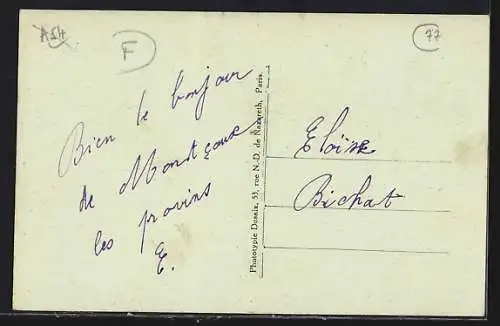 ASH
F
77
Bien le bonjour
de Montçeaux
les provins
E.
Phototypie Desaix, 53, rue N.-D. de Nazareth, Paris.
Eloïse
Bichat